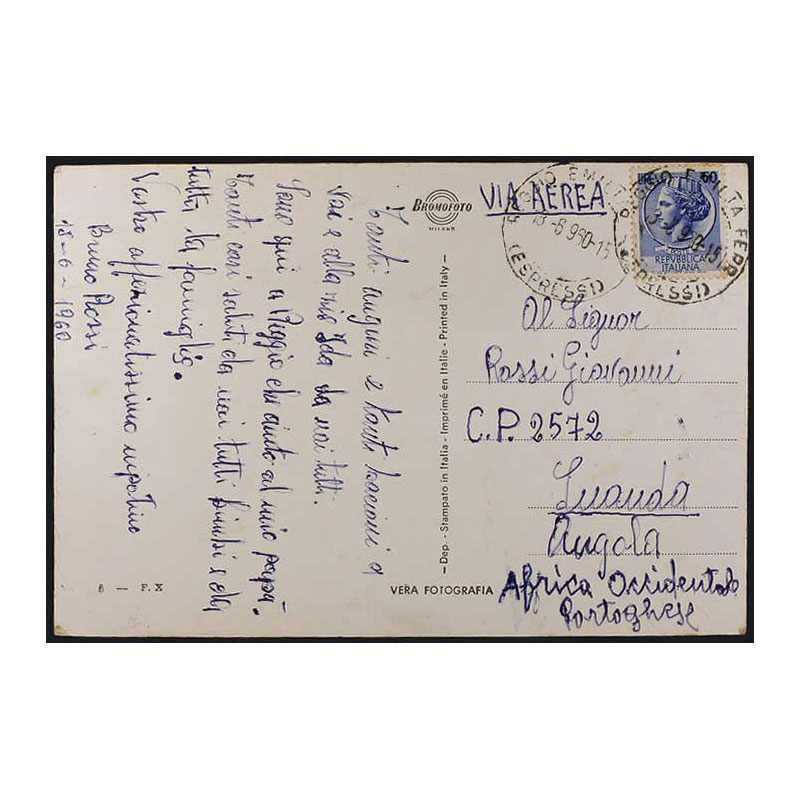 Tanti auguri e tanti bacioni a
voi e alla zia Ida da noi tutti.
Sono qui a Reggio chi aiuto al mio papà.
Tanti cari saluti da noi tutti e da
tutta la famiglia.
Vostro affezionatissimo nipotino
Bruno Rossi
18-6-1960
6 — F. X
BROMOFOTO
MILANO
VIA AEREA
REGGIO EMILIA
13-6 960-15
(ESPRESSI)
REGGIO EMILIA FERR
960-15
(ESPRESSI)
LIRE 60
POSTE
REPUBBLICA
ITALIANA
—Dep. - Stampato in Italia - Imprimé en Italie - Printed in Italy—
VERA FOTOGRAFIA
Al Signor
Rossi Giovanni
C.P. 2572
Luanda
Angola
Africa Occidentale
Portoghese